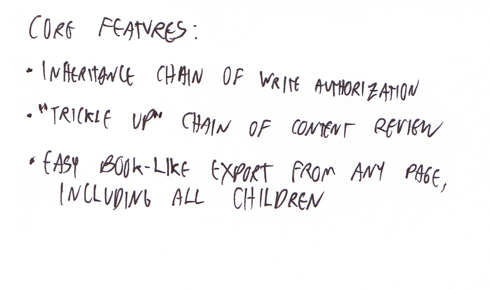 CORE FEATURES:
• INHERITANCE CHAIN OF WRITE AUTHORIZATION
• "TRICKLE UP" CHAIN OF CONTENT REVIEW
• EASY BOOK-LIKE EXPORT FROM ANY PAGE,
INCLUDING ALL CHILDREN